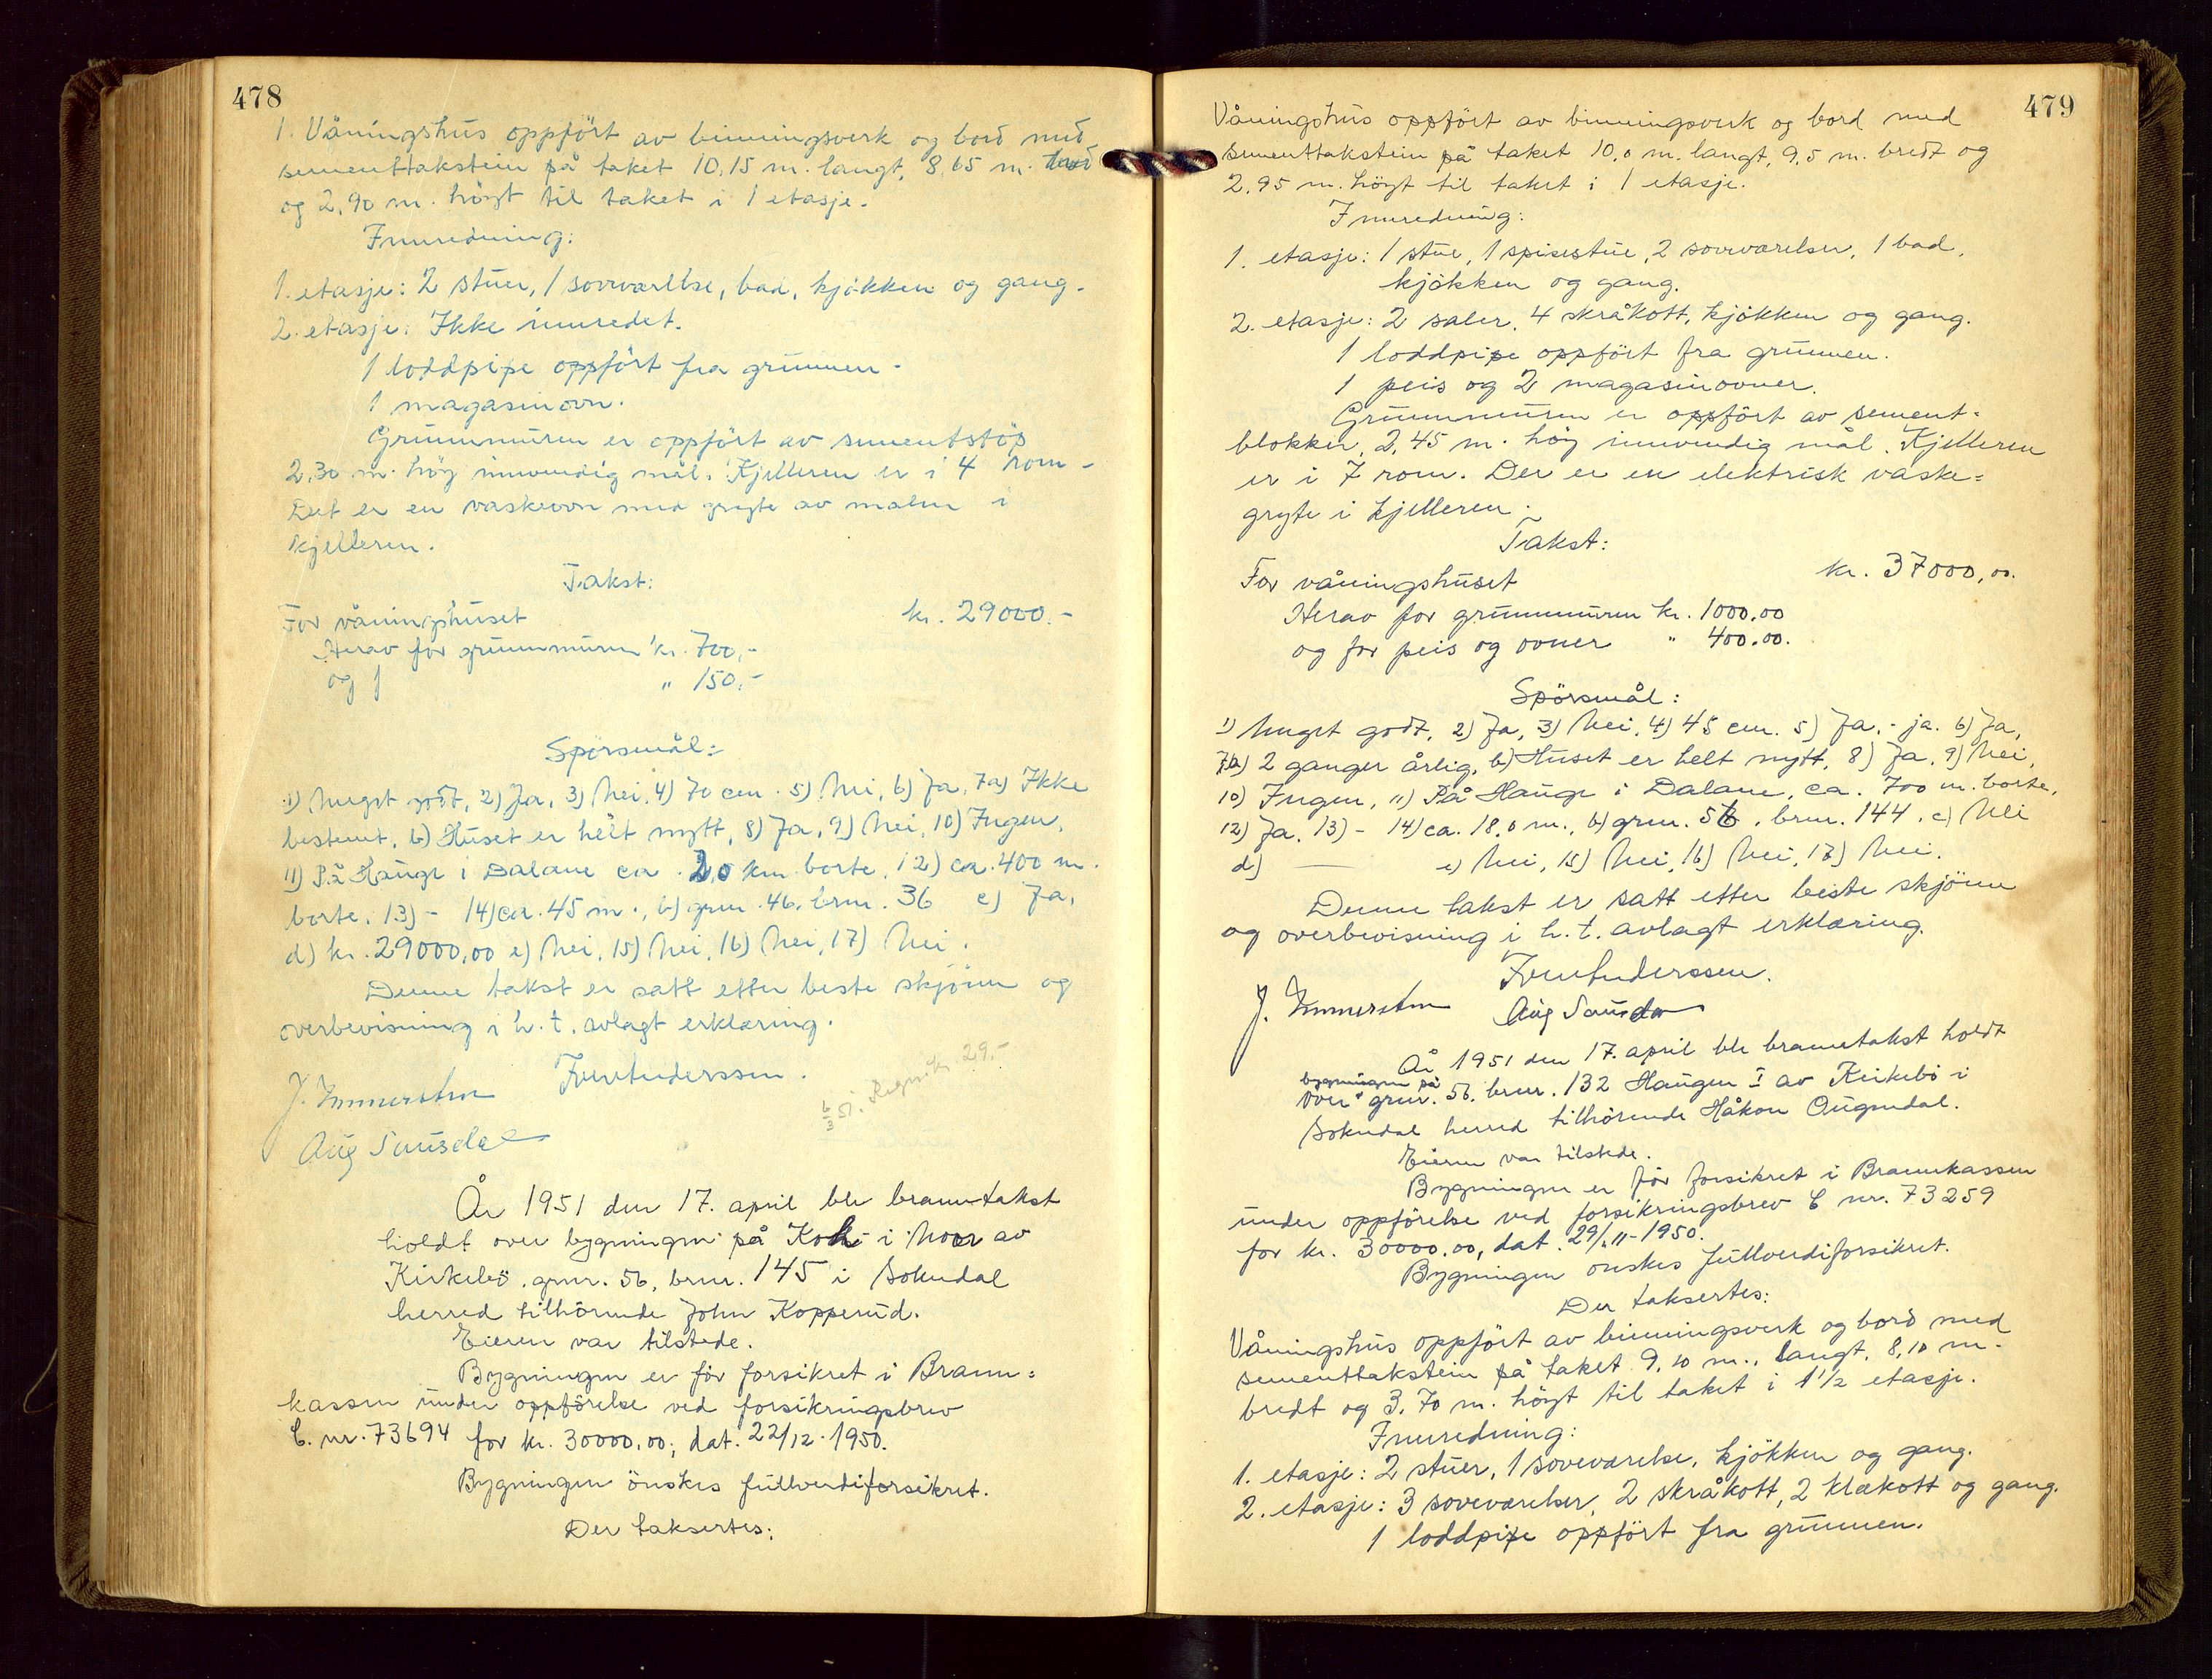 478
1. Våningshus oppført av binningsverk og bord med
sementtakstein på taket 10,15 m. langt, 8,65 m. bred
og 2,90 m. høyt til taket i 1 etasje.
Innredning:
1. etasje: 2 stuer, 1 soveværelse, bad, kjøkken og gang.
2. etasje: Ikke innredet.
1 loddpipe oppført fra grunnen.
1 magasinovn.
Grunnmuren er oppført av sementstøp
2,30 m. høy innvendig mål. Kjelleren er i 4 rom.
Det er en vaskeovn med gryte av malm i
kjelleren.
Takst:
For våningshuset kr. 29000.-
Herav for grunnmuren kr. 700,-
og f " 150,-
Spörsmål:
1) Meget godt, 2) Ja, 3) Nei, 4) 70 cm. 5) Nei, 6) Ja, 7a) Ikke
bestemt, b) Huset er helt nytt, 8) Ja, 9) Nei, 10) Ingen,
11) På Hauge i Dalane ca. 2,0 km borte, 12) ca. 400 m.
borte. 13) - 14) ca. 45 m., b) gnr. 46. brnr. 36 c) Ja,
d) kr. 29000,00 e) Nei, 15) Nei, 16) Nei, 17) Nei.
Denne takst er satt etter beste skjönn og
overbevisning i h.t. avlagt erklæring.
J. Immerstein
Aug Sausdal
6/3 51. Regnr. kr. 29.-
År 1951 den 17. april ble branntakst
holdt over bygningen på i Moer av
Kirkebö. gnr. 56, brnr. 145 i Sokndal
herred tilhörende John Kopperud.
Eieren var tilstede.
Bygningen er för forsikret i Brann=
kassen under oppförelse ved forsikringsbrev
C. nr. 73694 for kr. 30000,00, dat. 22/12. 1950.
Bygningen önskes fullverdiforsikret.
Der taksertes:
479
Våningshus oppfört av binningsverk og bord med
sementtakstein på taket 10,0 m. langt, 9,5 m. bredt og
2,95 m. höyt til taket i 1 etasje.
Innredning:
1. etasje: 1 stue, 1 spisestue, 2 soveværelser, 1 bad,
kjökken og gang.
2. etasje: 2 saler, 4 skråkott, kjökken og gang.
1 loddpipe oppfört fra grunnen.
1 peis og 2 magasinovner.
Grunnmuren er oppfört av sement=
blokker, 2,45 m. höy innvendig mål. Kjelleren
er i 7 rom. Der er en elektrisk vaske=
gryte i kjelleren.
Takst:
For våningshuset kr. 37000,00.
Herav for grunnmuren kr. 1000,00
og for peis og ovner " 400.00.
Spörsmål:
1) Meget godt, 2) Ja, 3) Nei, 4) 45 cm. 5) Ja, - ja. 6) Ja,
7a) 2 ganger årlig, b) Huset er helt nytt, 8) Ja, 9) Nei,
10) Ingen, 11) På Hauge i Dalane, ca. 700 m. borte,
12) Ja, 13) - 14) ca. 18,0 m., b) gnr. 56, brnr. 144, c) Nei
d) — e) Nei, 15) Nei, 16) Nei, 17) Nei.
Denne takst er satt etter beste skjönn
og overbevisning i h.t. avlagt erklæring.
J. Immerstein Aug Sausdal
År 1951 den 17. april ble branntakst holdt
over bygningen på gnr. 56. brnr. 132 Haugen I av Kirkebö i
Sokndal herred tilhörende Håkon Augendal.
Eieren var tilstede.
Bygningen er för forsikret i Brannkassen
under oppförelse ved forsikringsbrev C nr. 73259
for kr. 30000.00, dat. 29/11-1950.
Bygningen önskes fullverdiforsikret.
Der taksertes:
Våningshus oppfört av binningsverk og bord med
sementtakstein på taket 9,10 m., langt, 8,10 m.
bredt og 3,70 m. höyt til taket i 1 1/2 etasje.
Innredning:
1. etasje: 2 stuer, 1 soveværelse, kjökken og gang.
2. etasje: 3 soveværelser, 2 skråkott, 2 klækott og gang.
1 loddpipe oppfört fra grunnen.